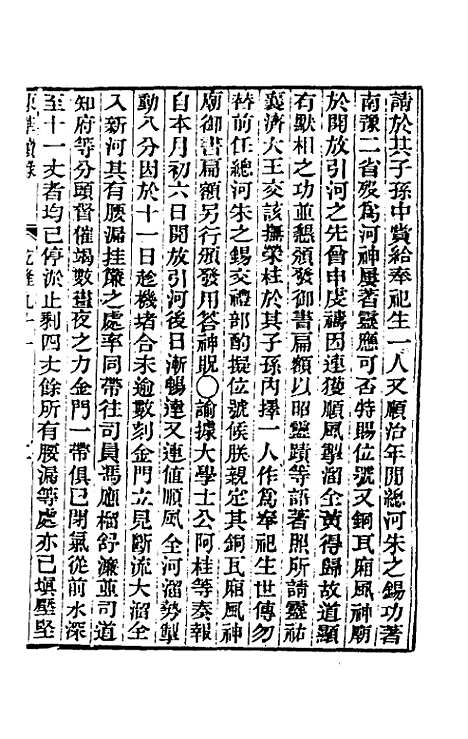 請於其子孫中賞給奉祀生一人又順治年間總河朱之錫功著
南豫二省歿爲河神屢著靈應可否特賜位號又銅瓦廂風神廟
於開放引河之先曾申虔禱因連獲順風掣溜全黃得歸故道顯
有默相之功並懇頒發御書扁額以昭靈蹟等語著照所請靈祐
襄濟大王交該撫榮柱於其子孫內擇一人作爲奉祀生世傳勿
替前任總河朱之錫交禮部酌擬位號候朕親定其銅瓦廂風神
廟御書扁額另行頒發用答神貺○諭據大學士公阿桂等奏報
自本月初六日開放引河後日漸暢達又連値順風全河溜勢掣
動八分因於十一日趁機堵合未逾數刻金門立見斷流大溜全
入新河其有腰漏挂簾之處率同帶往司員馮應榴舒濂並司道
知府等分頭督催竭數晝夜之力金門一帶俱已閉氣從前水深
至十一丈者均已停淤止剩四丈餘所有腰漏等處亦已塡壓堅
東華續錄 乾隆九十一